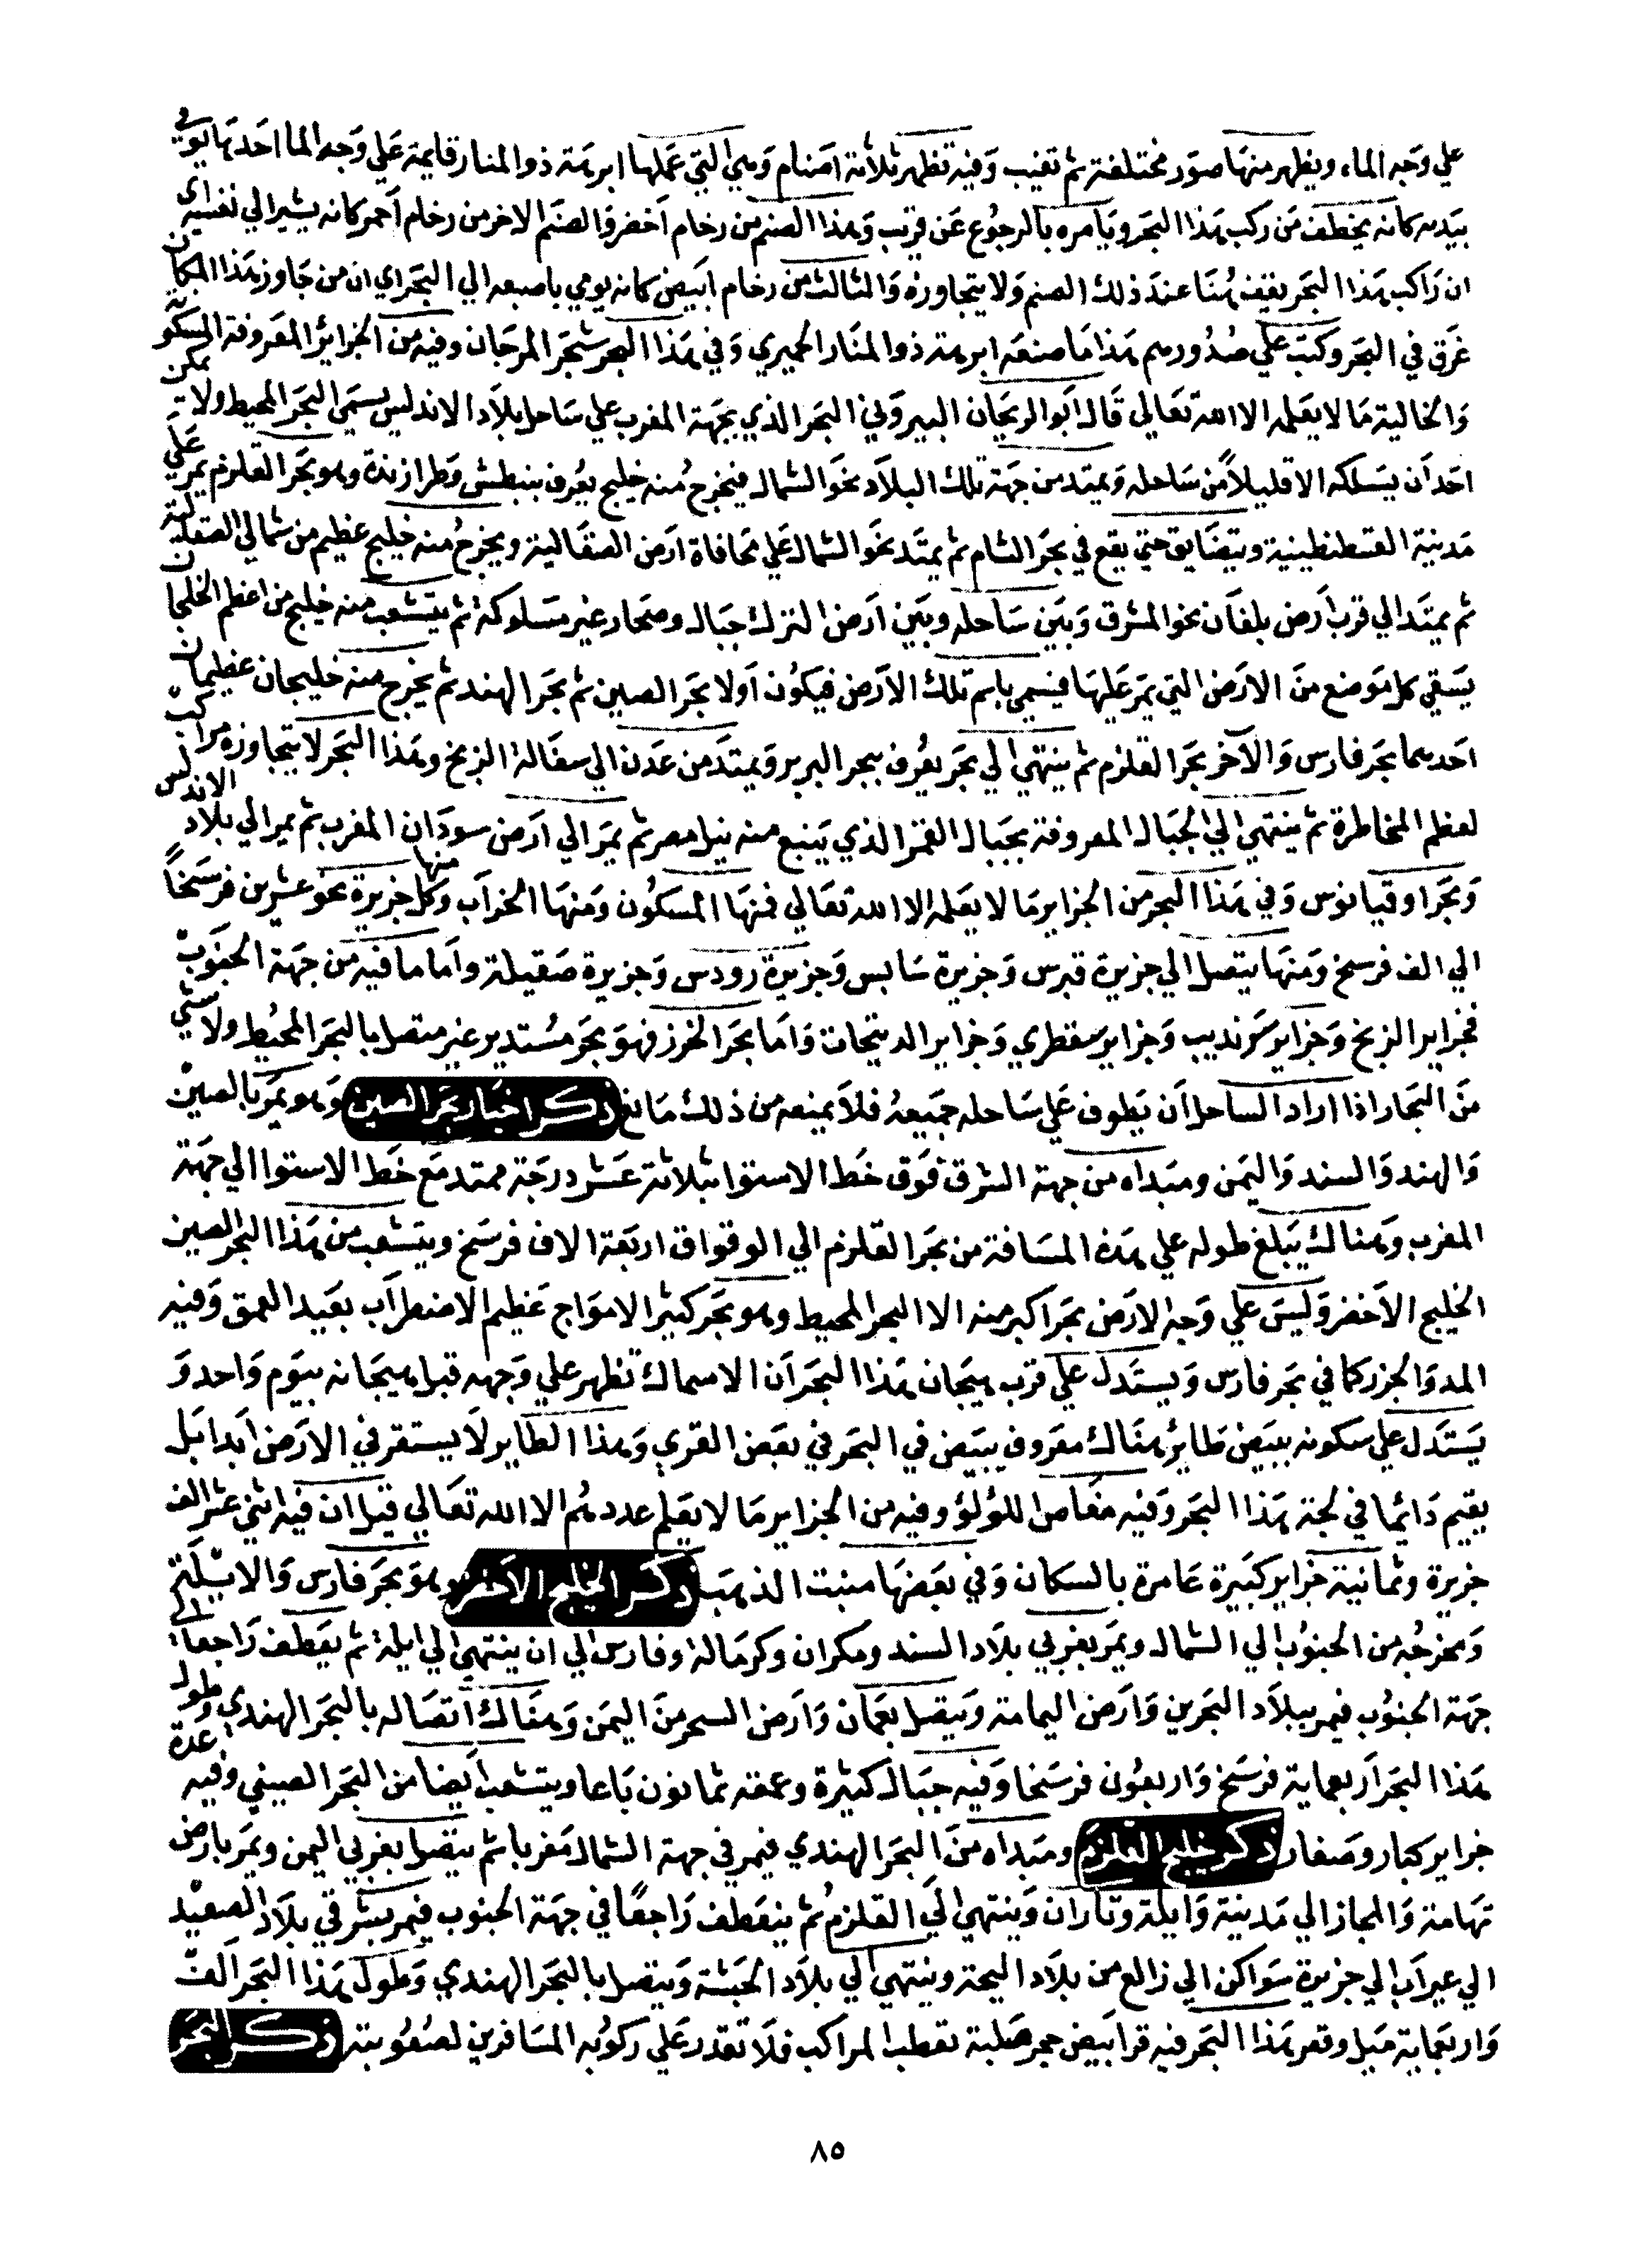 علي وجه الماء ويظهر منها صور مختلفة ثم تغيب وفيه تظهر ثلاثة اصنام وهي التي عملها ابرهة ذو المنار قايمة علي وجه الما احدها يومي
بيده كانه يخطف من ركب هذا البحر ويامره بالرجوع عن قريب وهذا الصنم من رخام اخضر والصنم الاخر من رخام احمر كانه يشير الي نفسه اي
ان راكب هذا البحر يقف هنا عند ذلك الصنم ولا يتجاوزه والثالث من رخام ابيض كانه يومي باصبعه الي البحر اي ان من جاوز هذا المكان
غرق في البحر وكتب علي صدورهم هذا ما صنعه ابرهة ذو المنار الحميري وفي هذا البحر شجر المرجان وفيه من الجزاير المعروفة المسكونة
والخالية ما لا يعلمه الا الله تعالي قال ابو الريحان البيروني البحر الذي بجهة المغرب علي ساحل بلاد الاندلس يسمي البحر المحيط ولا يمكن
احد ان يسلكه الا قليلا من ساحله ويمتد من جهة تلك البلاد نحو الشمال فيخرج منه خليج يعرف بنبطش وطرازندة وهو بحر القلزم يمر علي
مدينة القسطنطينية ويتضايق حتي يقع في بحر الشام ثم يمتد نحو الشمال علي محافاة ارض الصقالية ويخرج منه خليج عظيم من شمالي الصقلية
ثم يمتد الي قرب ارض بلغان نحو المشرق وبين ساحله وبين ارض الترك جبال وصحار غير مسلوكة ثم يتشعب منه خليج من اعظم الخلجان
يسقي كل موضع من الارض التي يمر عليها فيسمي باسم تلك الارض فيكون اولا بحر الصين ثم بحر الهند ثم يخرج منه خليجان عظيمان
احدهما بحر فارس والآخر بحر القلزم ثم ينتهي الي بحر يعرف ببحر البربر ويمتد من عدن الي سفالة الزنج وهذا البحر لا يتجاوزه مراكب
لعظم المخاطرة ثم ينتهي الي الجبال المعروفة بجبال القمر الذي ينبع منه نيل مصر ثم يمر الي ارض سودان المغرب ثم يمر الي بلاد الاندلس
وبحر اوقيانوس وفي هذا البحر من الجزاير ما لا يعلمه الا الله تعالي فمنها المسكون ومنها الخراب وكل جزيرة منها نحو عشرين فرسخا
الي الف فرسخ ومنها يتصل الي جزيرة قبرس وجزيرة سابس وجزيرة رودس وجزيرة صقيلة واما ما فيه من جهة الجنوب
فجزاير الزنج وجزاير سرنديب وجزاير سقطري وجزاير الديبجات واما بحر الخرز فهو بحر مستدير غير متصل بالبحر المحيط ولا شي
من البحار اذا اراد الساحل ان يطوف علي ساحله جميعه فلا يمنعه من ذلك مانع ذكر اخبار بحر الصين وهو يمر بالصين
والهند والسند واليمن ومبداه من جهة الشرق فوق خط الاستوا بثلاثة عشر درجة ممتد مع خط الاستوا الي جهة
المغرب وهناك يبلغ طوله علي هذه المسافة من بحر القلزم الي الوقواق اربعة الاف فرسخ ويتشعب من هذا البحر الصين
الخليج الاخضر وليس علي وجه الارض بحر اكبر منه الا البحر المحيط وهو بحر كثير الامواج عظيم الاضطراب بعيد العمق وفيه
المد والجزر كما في بحر فارس ويستدل علي قرب هيجان هذا البحر ان الاسماك تظهر علي وجهه قبل هيجانه بيوم واحد و
يستدل علي سكونه ببيض طاير هناك معروف يبيض في البحر في بعض القري وهذا الطاير لا يستقر في الارض ابدا بل
يقيم دائما في لجة هذا البحر وفيه مغاص اللؤلؤ وفيه من الجزاير ما لا يعلم عددهم الا الله تعالي قيل ان فيه اثني عشر الف
جزيرة وثمانية جزاير كبيرة عامرة بالسكان وفي بعضها منبت الذهب ذكر الخليج الاخضر وهو بحر فارس والابلة
ومخرجه من الجنوب الي الشمال ويمر بغربي بلاد السند ومكران وكرمالة وفارس الي ان ينتهي الي ايلة ثم يعطف راجعا الي
جهة الجنوب فيمر ببلاد البحرين وارض اليمامة ويتصل بعمان وارض السحر من اليمن وهناك اتصاله بالبحر الهندي وطول
هذا البحر اربعماية فرسخ واربعون فرسخا وفيه جبال كثيرة وعمقه ثمانون باعا ويتشعب ايضا من البحر الصيني وفيه عدة
جزاير كبار وصغار ذكر خليج القلزم ومبداه من البحر الهندي فيمر في جهة الشمال مغربا ثم يتصل بغربي اليمن ويمر بارض
تهامة والمجاز الي مدينة وايلة وتاران وينتهي الي القلزم ثم ينعطف راجعا في جهة الجنوب فيمر بشرقي بلاد الصعيد
الي عيراب الي جزيرة سواكن الي زالع من بلاد البجة وينتهي الي بلاد الحبشة ويتصل بالبحر الهندي وطول هذا البحر الف
واربعماية ميل وقعر هذا البحر فيه قرا بيض حجر صلبة تعطب المراكب فلا تقدر علي ركوبه المسافرين لصعوبته ذكر البحر
٨٥